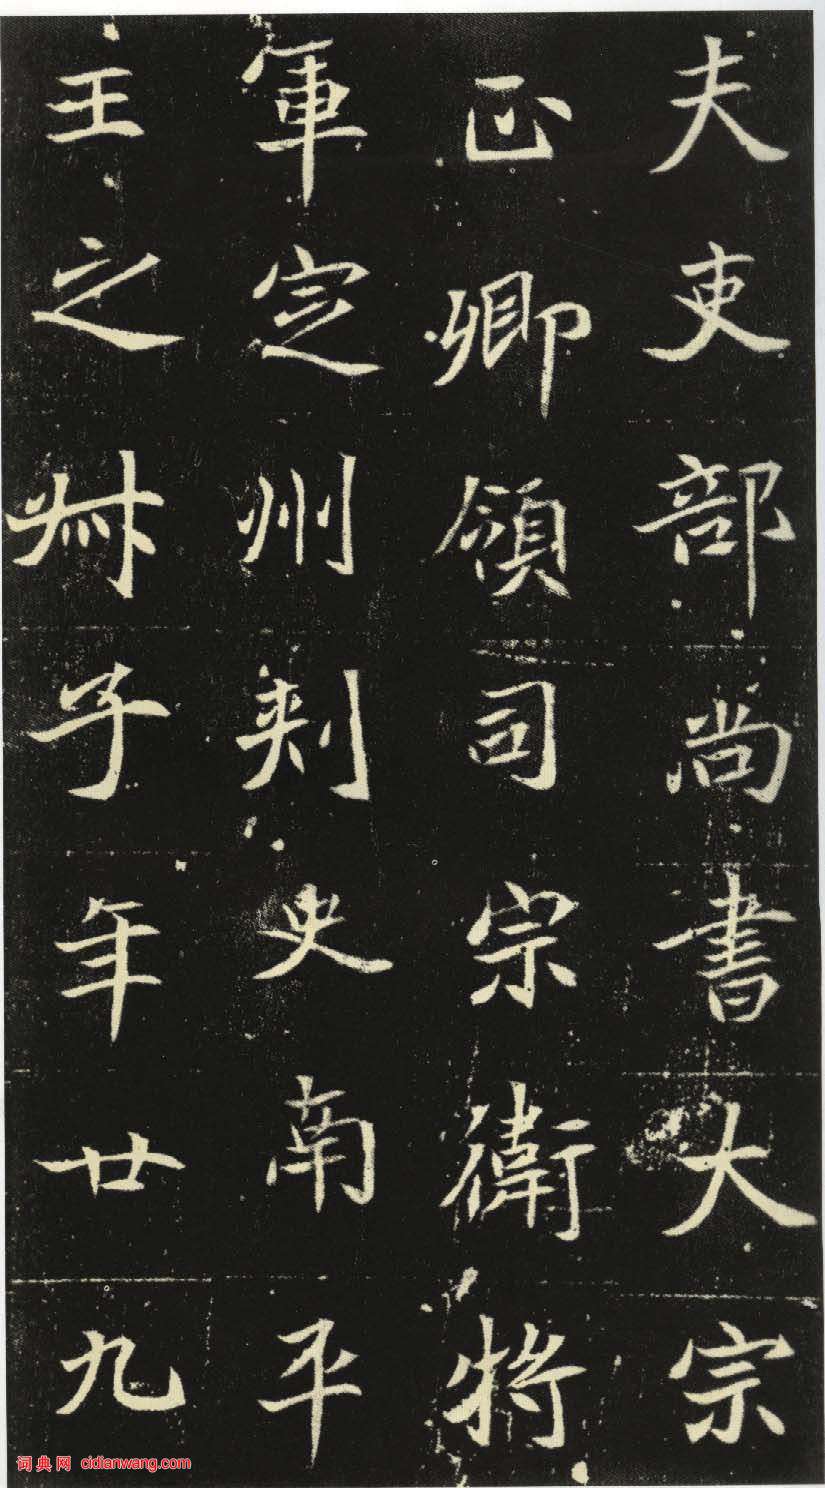 夫吏部尚書大宗
正卿領司宗衛將
軍定州刾史南平
王之子年廿九
词典网 cidianwang.com